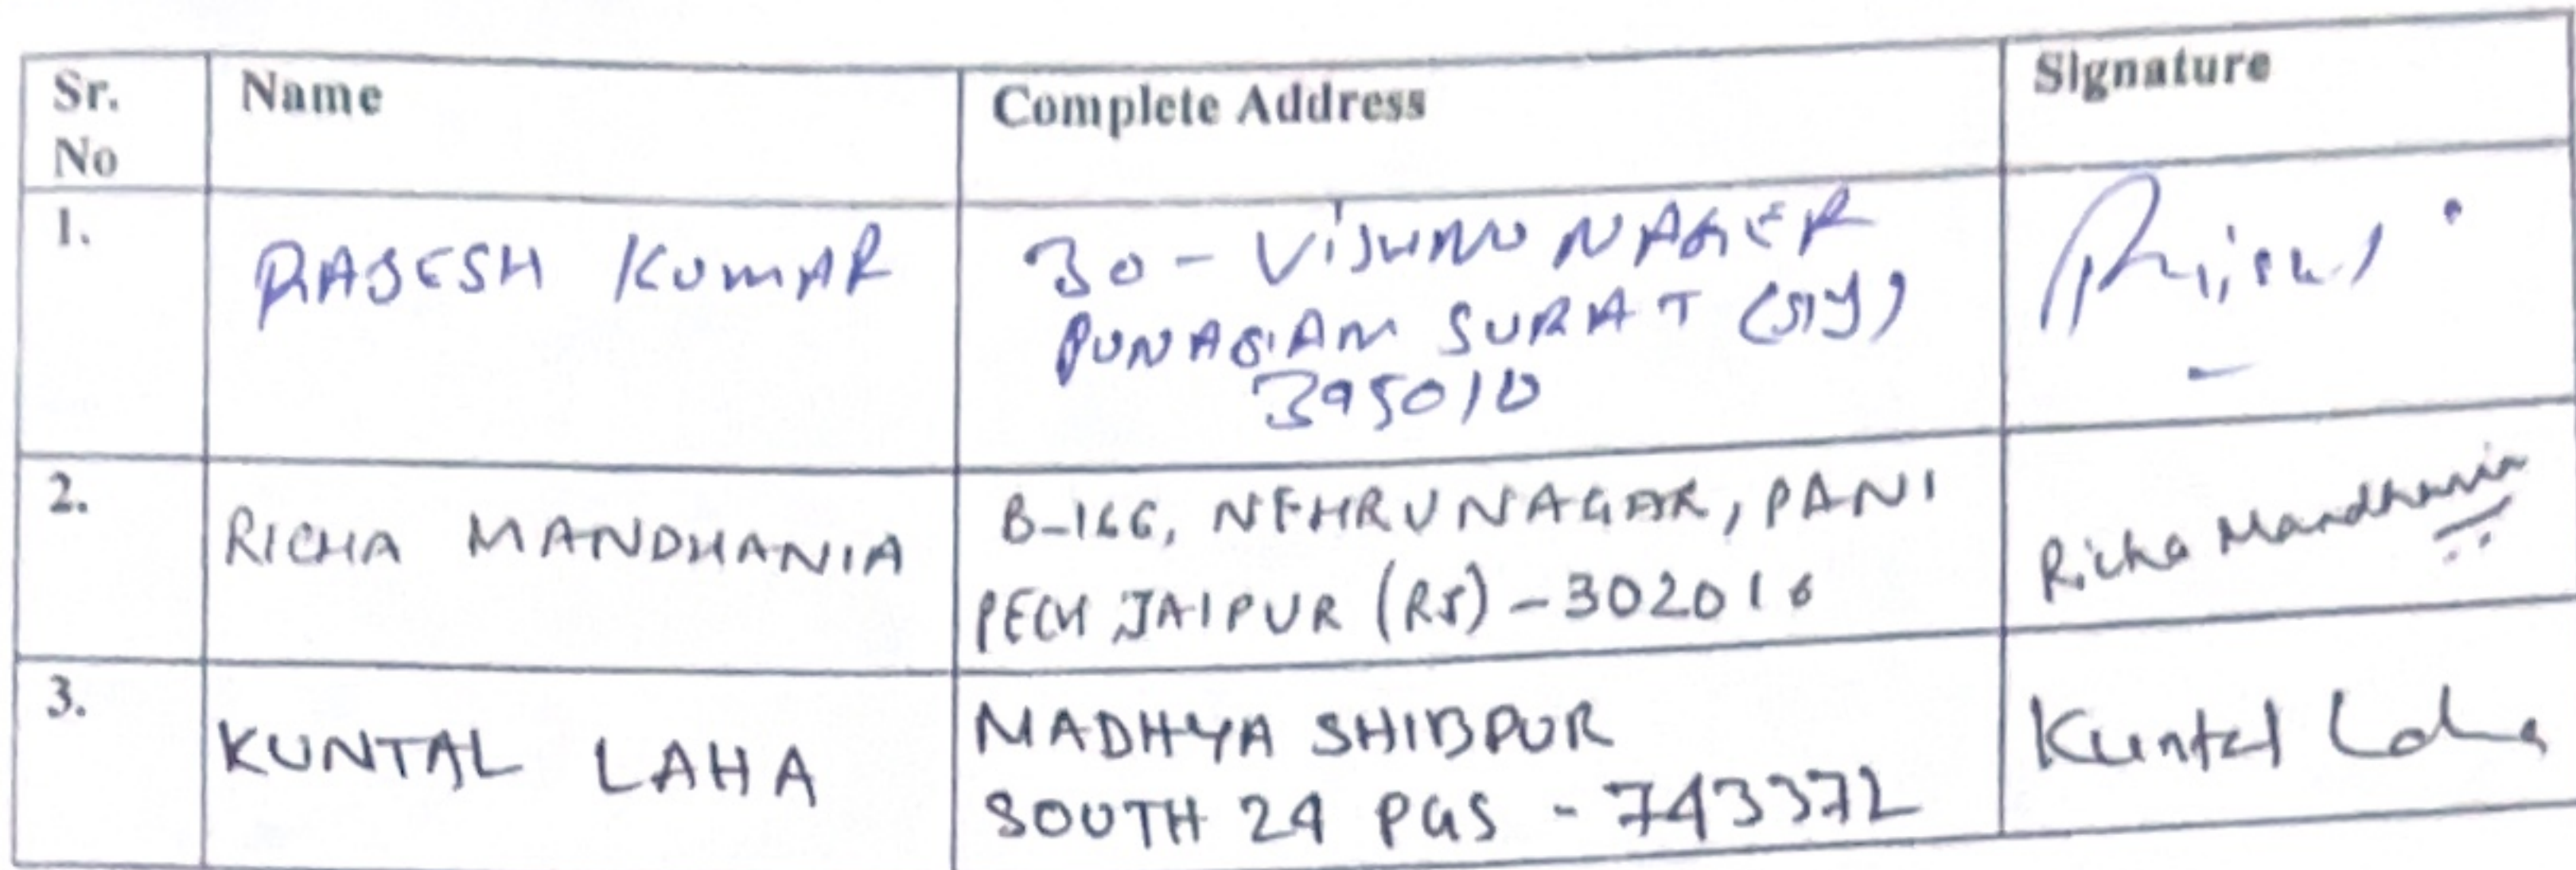 Sr. No
Name
Complete Address
Signature
1.
RAJESH KUMAR
30 - VISHNU NAGER
PUNAGAM SURAT (GJ)
395010
2.
RICHA MANDHANIA
B-166, NEHRU NAGAR, PANI
PECH JAIPUR (RJ) - 302016
Richa Mandhania
3.
KUNTAL LAHA
MADHYA SHIBPUR
SOUTH 24 PGS - 743372
Kuntal Laha